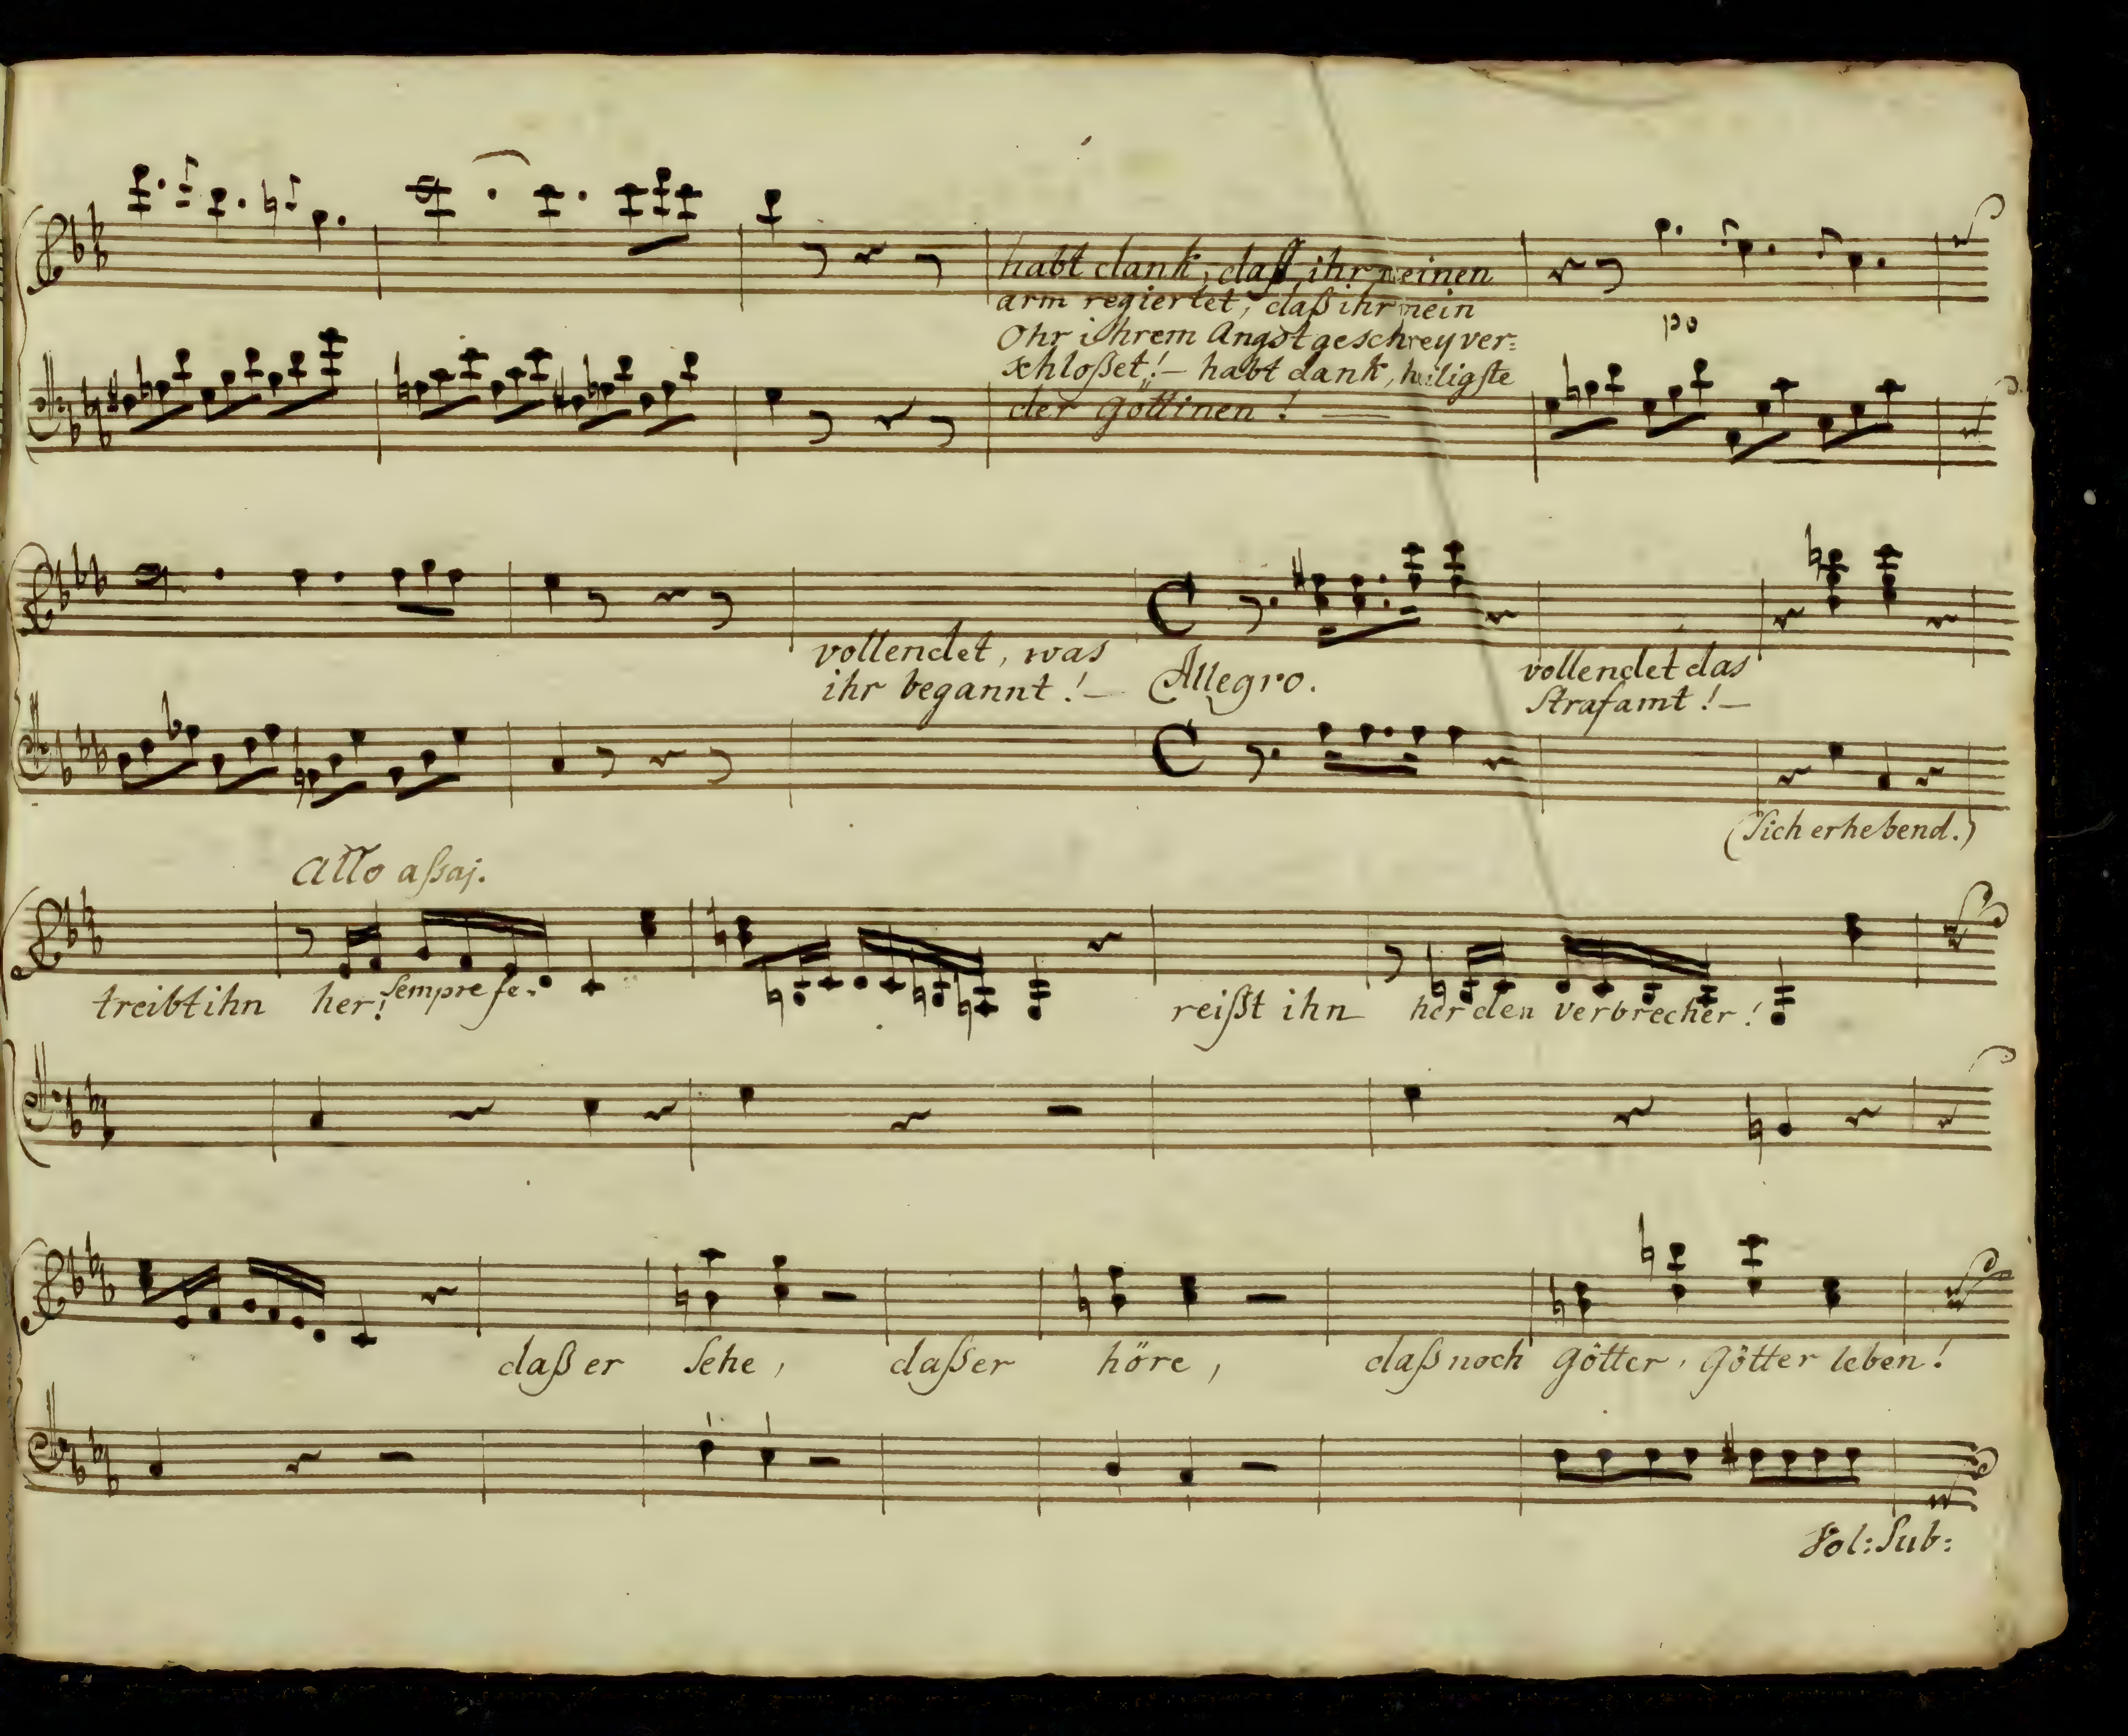 habt dank, daß ihr meinen
arm regiertet, daß ihr mein
Ohr ihrem Angstgeschrey ver=
schloßet!– habt dank, heiligste
der Göttinen!
po
vollendet, was
ihr begannt!–
Allegro.
vollendet das
Strafamt!–
(Sich erhebend.)
Allo aßaj.
treibt ihn her! Sempre fe.
reißt ihn her den verbrecher!
daß er sehe, daß er höre, daß noch Götter, Götter leben!
Vol: Sub: